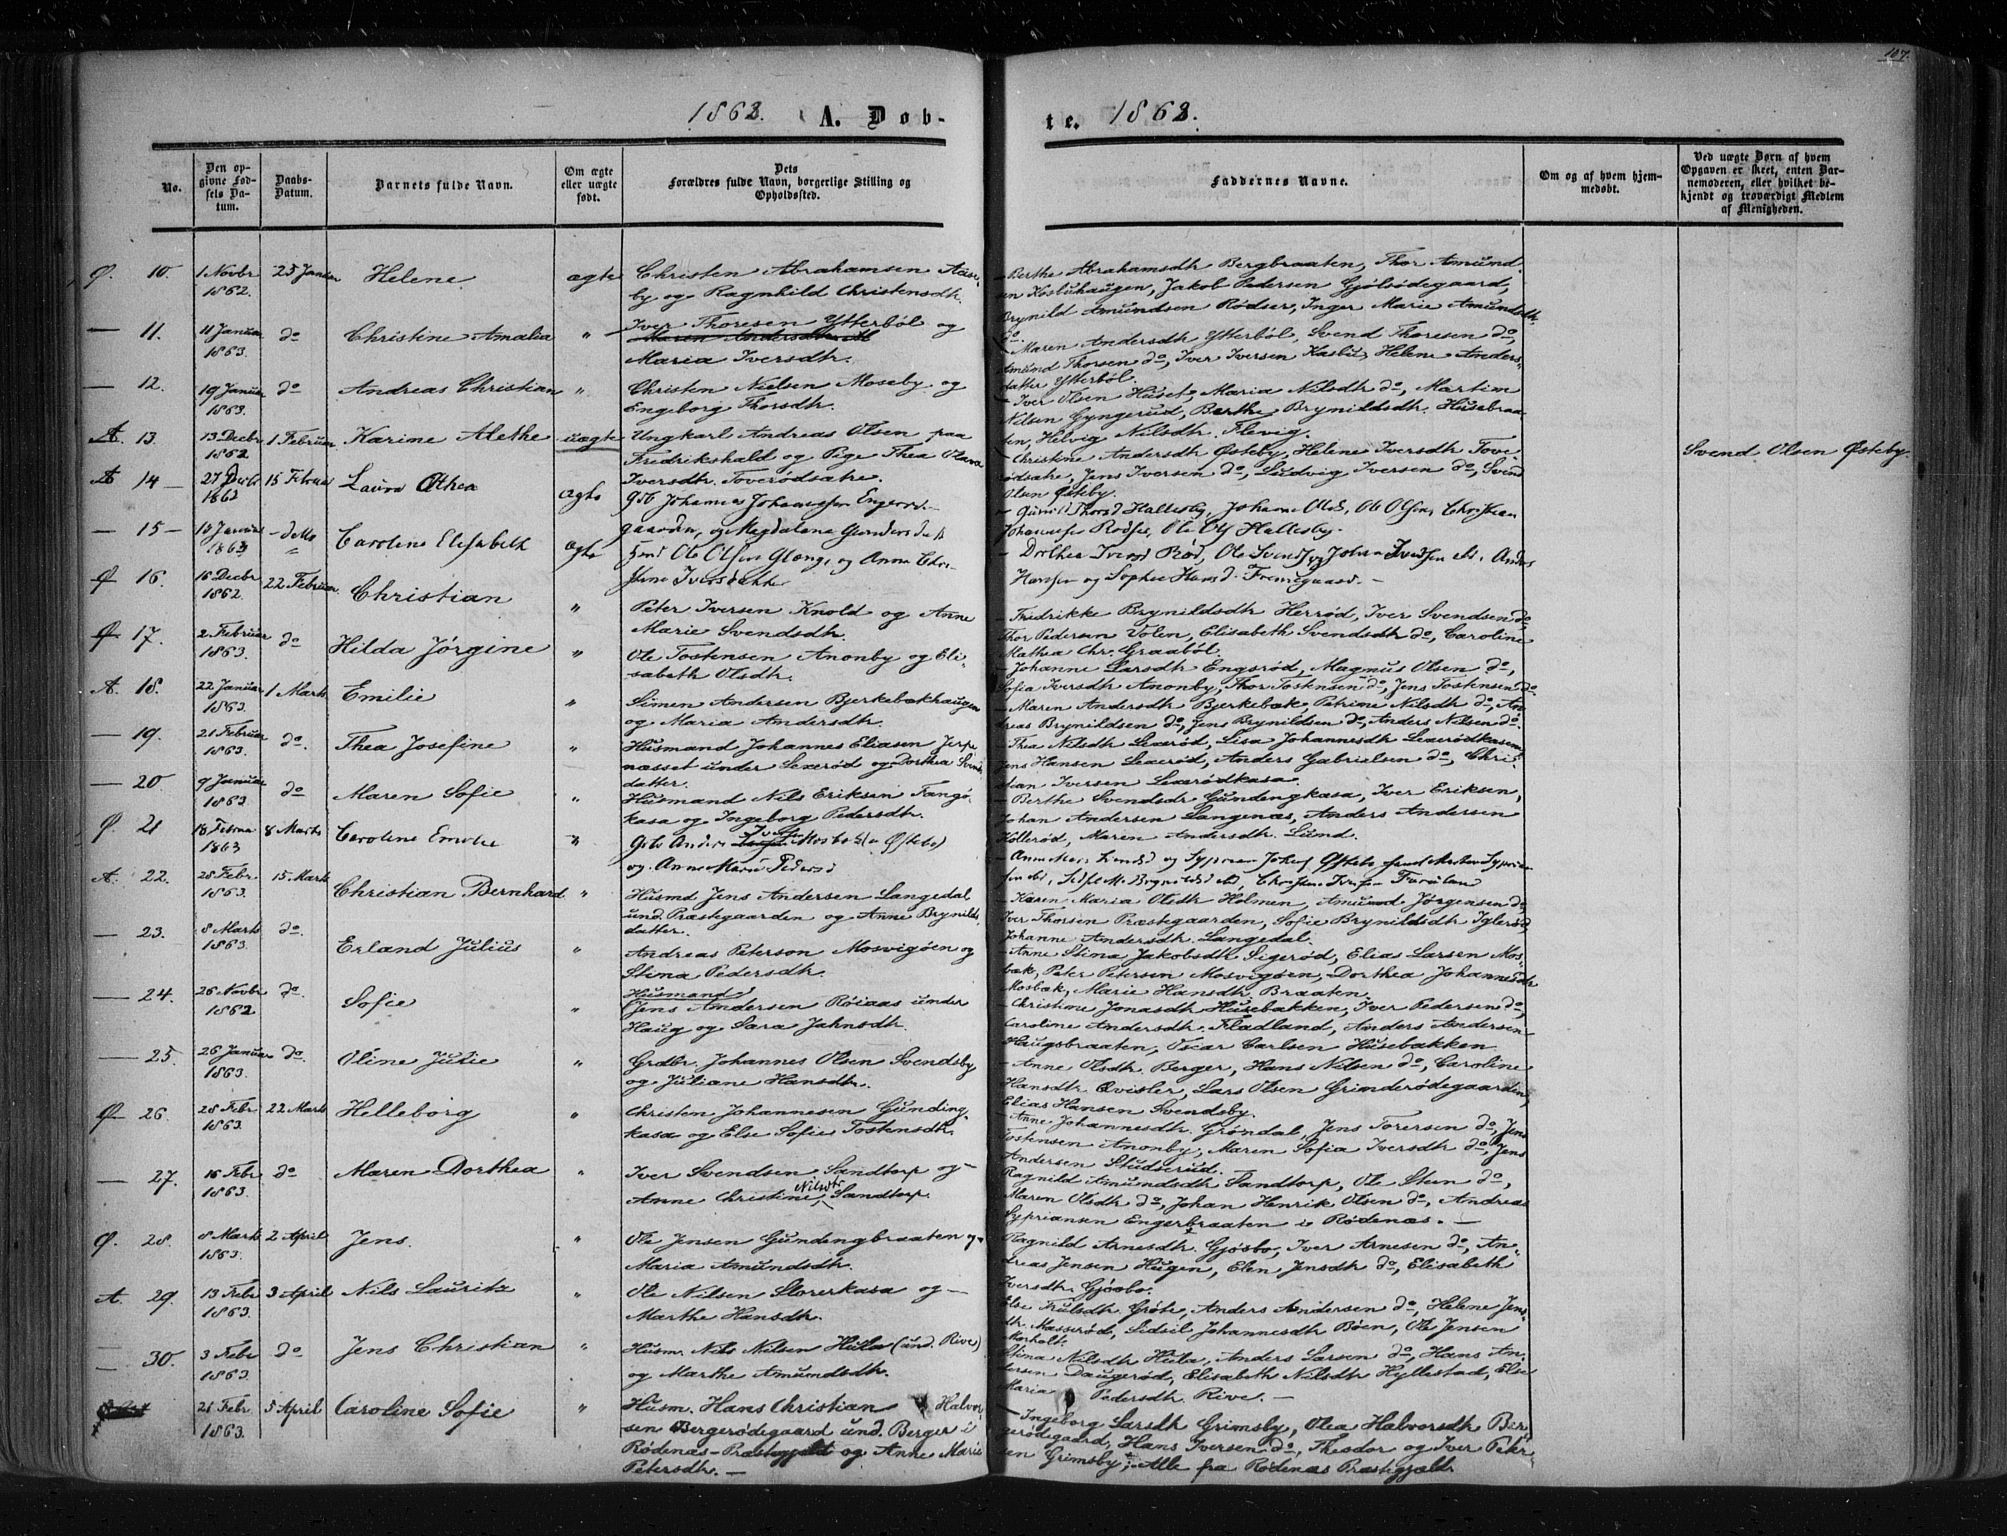 107.
1863. A. Døb-
te. 1863.
No.
Den opgivne Fødsels Datum.
Daabs-Datum.
Barnets fulde Navn.
Om ægte eller uægte født.
Dets Forældres fulde Navn, borgerlige Stilling og Opholdssted.
Faddernes Navne.
Om og af hvem hjemmedøbt.
Ved uægte Børn af hvem Opgaven er skeet, enten Barnemoderen, eller hvilket bekjendt og troværdigt Medlem af Menigheden.
Ø. 10. 1 Novbr 1862. 25 Januar Helene ægte
Christen Abrahamsen Aase-
by og Ragnhild Christensdtr.
Berthe Abrahamsdtr Bergbraaten, Thor Amund-
sen Kosbuhaugen, Jakob Pedersen Gjølsødegaard,
Brynild Amundsen Rødser, Inger Marie Amundsdtr.
— 11. 11 Januar 1863. do Christine Amalia "
Iver Thoresen Ytterbøl og
Maria Iversdtr.
do. Maren Andersdtr Ytterbøl, Svend Thoresen do,
Amund Thorsen do, Iver Iversen Kasbu, Helene Anders-
datter Ytterbøl.
— 12. 19 Januar 1863. do Andreas Christian "
Christen Nielsen Moseby og
Engeborg Thorsdtr.
Iver Olsen Huset, Maria Nilsdtr do, Martin
Nilsen Gyngerud, Berthe Brynildsdtr. Husebraa-
ten, Helvig Nilsdtr. Flevig.
A. 13. 13 Decbr 1862 1 Februar Karine Alethe uægte
Ungkarl Andreas Olsen paa
Fredrikshald og Pige Thea Olava
Iversdtr. Toverødsætre.
Christine Andersdtr Østeby, Helene Iversdtr Tove-
rødsætre, Jens Iversen do, Ludvig Iversen do, Svend
Olsen Østeby.
Svend Olsen Østeby.
A 14 — 27 Decbr 1862 15 Februar Laura Athea ægte
Gdb. Johannes Johannessen Engerød-
gaarden, og Magdalena Gundersdatt
Gunild Thorsd Hallesby, Johanne Olsd, Ole Olsen, Christian
Johannesen Rødser, Ole Ols Hallesby.
— 15 — 1863 — ditto Caroline Elisabeth ægte
Ole Olsen Glang, og Anne Chri-
stine Iversdatter
Dorthea Iversd Rød, Ole Svendsen, Johan Iversen ibd, Anders
Hansen og Sophie Hansd. Fremegaard. —
Ø 16. 16 Decbr 1862. 22 Februar. Christian "
Peter Iversen Knold og Anne
Marie Svendsdtr.
Fredrikke Brynildsdtr Herrød, Iver Svendsen do,
Thor Pedersen Volen, Elisabeth Svendsdtr do, Caroline
Mathea Chr. Graabøl.
Ø 17. 2 Februar 1863. do Hilda Jørgine "
Ole Tostensen Anonby og Eli-
sabeth Olsdtr.
Johanne Larsdtr Engsrød, Magnus Olsen do,
Sofia Iversdtr Anonby, Thor Tostensen do, Jens Tostensen do
A. 18. 22 Januar 1863. 1 Marts Emilie "
Simen Andersen Bjerkebækhaugen
og Maria Andersdtr.
Maren Andersdtr Bjerkebæk, Petrine Nilsdtr do, An-
dreas Brynildsen do, Jens Brynildsen do, Anders Nilsen do.
— 19. 21 Februar 1863. do. Thea Josefine "
Husmand Johannes Eliasen Jerpe-
næsset under Lexerød og Dorthea Svends-
datter.
Thea Nilsdtr Lexerød, Lisa Johannesdtr Lexerødkasen
Jens Hansen Lexerød, Anders Gabrielsen do, Chri-
stian Iversen Lexerødkasa.
— 20. 9 Januar 1863. do Maren Sofie "
Husmand Nils Eriksen Tangø-
kasa og Ingeborg Pedersdtr.
Berthe Svendsdr Gundengkasa, Iver Eriksen,
Johan Andersen Langenæs, Anders Andersen
Kollerød, Maren Andersdtr. Lund.
Ø. 21 18 Februa 1863 8 Marts Caroline Emilie "
Gdb Anders Mosbæk (a Østebø)
og Anne Marie Pedersd
A. 22. 28 Febr. 1863. 15 Marts Christian Bernhard "
Husmd Jens Andersen Langedal
und. Præstegaarden og Anne Brynilds-
datter.
Karen Maria Olsdtr Holmen, Amund Jørgensen do,
Iver Thorsen Præstegaarden, Sofie Brynildsdtr Iglerød
Johanne Andersdtr. Langedal.
— 23. 8 Marts 1863. do. Erland Julius "
Andreas Peterson Mosvigøen og
Stina Pedersdtr.
Anne Stina Jakobsdtr Sigerød, Elias Larsen Mos-
bæk, Peter Petersen Mosvigøen, Dorthea Johannesdtr
Mosbæk, Marie Hansdtr. Braaten.
— 24. 26 Novbr 1862 do. Sofie "
Husmand
Jens Andersen Røiaas under
Haug og Sara Jahnsdtr.
Christine Jonasdtr Husebakken, Iver Pedersen do,
Caroline Andersdtr. Fladland, Anders Andersen
Haugsbraaten, Oscar Carlsen Husebakken.
— 25. 26 Januar 1863. do. Oline Julie "
Grdbr. Johannes Olsen Svendsby
og Juliane Hansdtr.
Anne Olsdtr. Berger, Hans Nilsen do, Caroline
Hansdtr. Qvisler, Lars Olsen Grimderødegaarden,
Elias Hansen Svendsby.
Ø 26. 28 Febr 1863. 22 Marts Helleborg "
Christen Johannesen Gunding-
kasa og Else Sofie Tostensdtr.
Anne Johannesdtr. Grøndal, Jens Torersen do, Jens
Tostensen Anonby, Maren Sofia Iversdtr do, Jens
Andersen Studserud.
— 27. 16 Febr 1863. do Maren Dorthea "
Iver Svendsen Sandtorp og —
Anne Christine Nilsdtr Sandtorp.
Ragnild Amundsdtr Sandtorp, Ole Steen do,
Maren Olsdtr do, Johan Henrik Olsen do, Andreas
Syprianson Engerbraaten i Rødenæs. —
Ø. 28. 8 Marts 1863. 2 April Jens. "
Ole Jensen Gundengbraaten og
Maria Amundsdtr.
Ragnild Arnesdtr. Gjøsbø, Iver Arnesen do, An-
dreas Jensen Hugen, Elen Jensdtr do, Elisabeth
Iversdtr. Gjøsbø.
A. 29. 13 Febr 1863. 3 April Nils Lauritz "
Ole Nilsen Slorerkasa og —
Marthe Hansdtr.
Else Trulsdtr. Grøte, Anders Andersen do, Helene Jens-
dtr. Masserød, Sidsil Johannesdtr Bøen, Ole Jensen
Morholt.
— 30. 3 Febr 1863. do Jens Christian "
Husm. Nils Nilsen Hula (und. Rive)
og Marthe Amundsdtr.
Stina Nilsdtr Hula, Anders Larsen do, Hans An-
dersen Daugerød, Elisabeth Nilsdtr Hyllestad, Else
Maria Pedersdtr. Rive. —
21 Febr 1863. 5 April Caroline Sofie "
Husm. Hans Christian Halvor-
sen Bergerødegaard und. Berger i
Rødenæs-Præstegjeld og Anne Marie
Petersdtr. —
Ingeborg Larsdtr Grimsby, Olea Halvorsdtr Ber-
gerødegaard, Hans Iversen do, Theodor og Iver Peter-
sen Grimsby; Alle fra Rødenæs Præstegjeld.